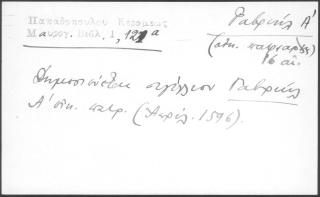 Παπαδοπούλου Κεραμέως
Μαυρογ. Βιβλ. 1, 121α
Γαβριὴλ Α'
(οἰκ. πατριάρχης
16 αἰ.
Δημοσιεύεται σιγίλλιον Γαβριὴλ
Α' οἰκ. πατρ. (Ἀπρίλ. 1596).